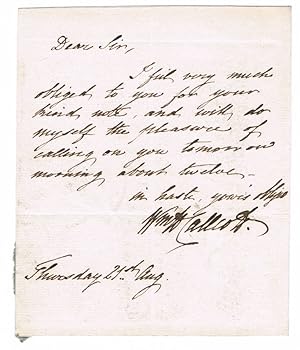 Dear Sir,
I feel very much
obliged to you for your
kind note, and will do
myself the pleasure of
calling on you tomorrow
morning about twelve -
in haste, yours
Wm H Callcott.
Thursday 21st Aug.